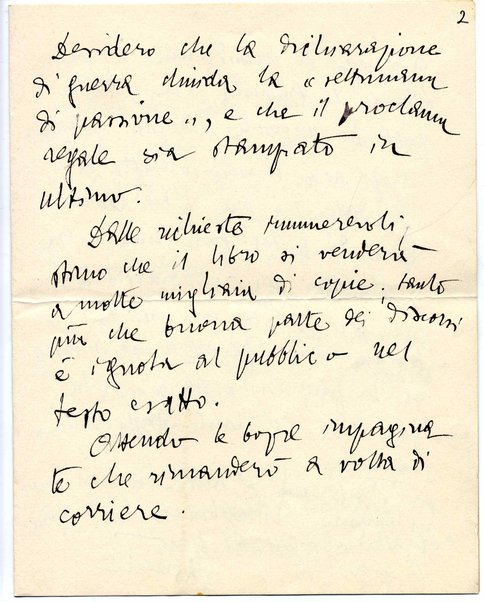 2
Desidero che la dichiarazione
di guerra chiuda la "settimana
di passione", e che il proclama
regale sia stampato in
ultimo.
Dalle richieste innumerevoli,
stimo che il libro si venderà
a molte migliaia di copie. tanto
più che buona parte dei discorsi
è ignota al pubblico nel
testo esatto.
Attendo le bozze impagina
te che rimanderò a volta di
corriere.